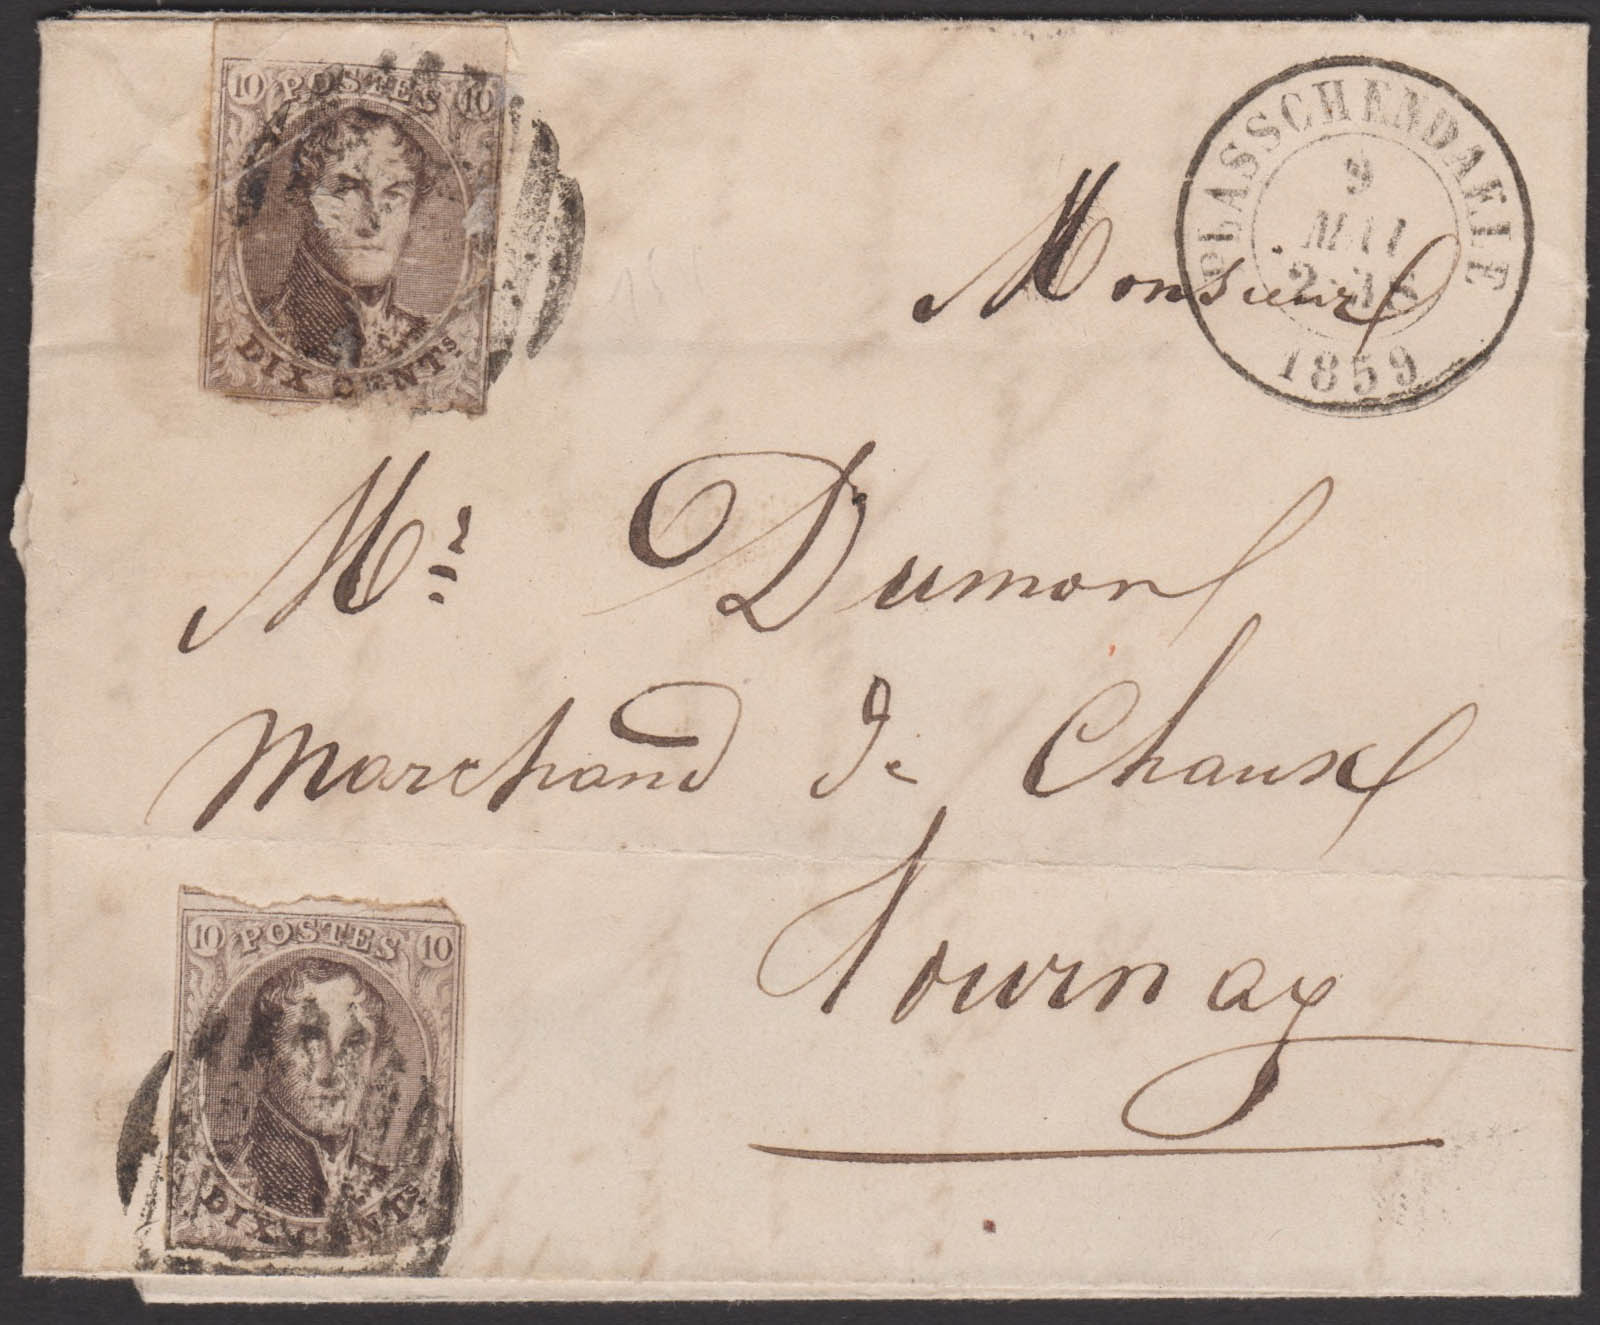 10 POSTES 10
DIX CENTS.
PLASSCHENDAELE
9
MAI
1859
Monsieur
Mr. Dumont
Marchand de Chaux
Tournay
10 POSTES 10
DIX CENTS.